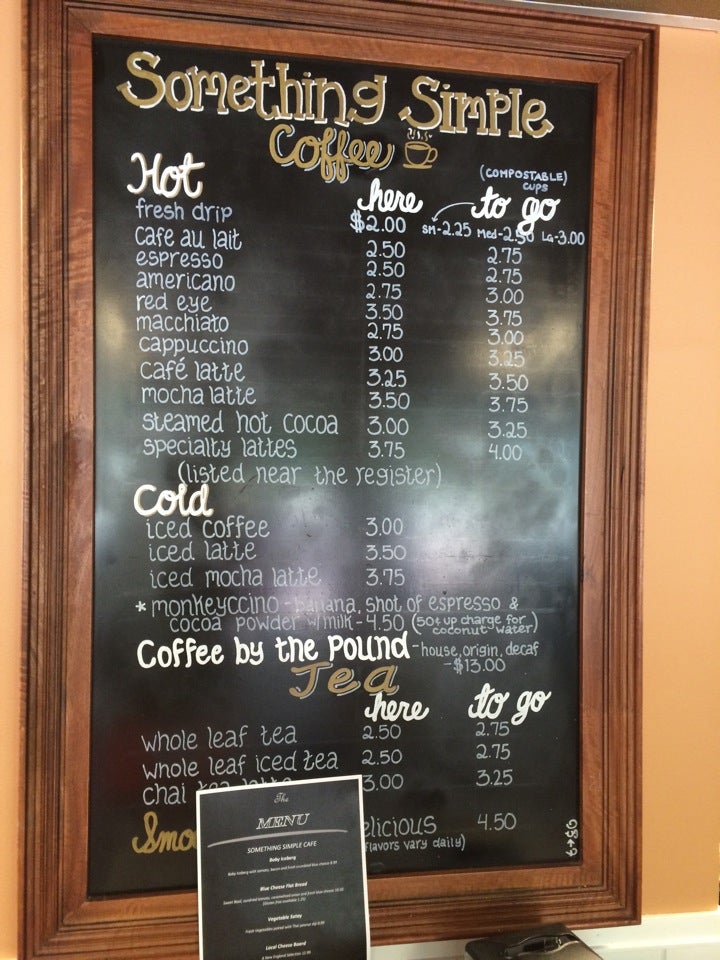 Something Simple
Coffee
Hot here (COMPOSTABLE) CUPS to go
fresh drip $2.00 SM-2.25 Med-2.50 LG-3.00
Cafe au lait 2.50 2.75
espresso 2.50 2.75
americano 2.75 3.00
red eye 3.50 3.75
macchiato 2.75 3.00
cappuccino 3.00 3.25
café latte 3.25 3.50
mocha latte 3.50 3.75
steamed hot cocoa 3.00 3.25
specialty lattes 3.75 4.00
(listed near the register)
Cold
iced coffee 3.00
iced latte 3.50
iced mocha latte 3.75
* monkeyccino - banana, shot of espresso &
cocoa powder w/milk - 4.50 (50¢ up charge for
coconut water)
Coffee by the Pound - house, origin, decaf
- $13.00
Tea
here to go
whole leaf tea 2.50 2.75
whole leaf iced tea 2.50 2.75
chai tea latte 3.00 3.25
Smo elicious 4.50
flavors vary daily)
The
MENU
SOMETHING SIMPLE CAFE
Baby Iceberg
Baby Iceberg with tomato, bacon and fresh crumbled blue cheese 8.99
Blue Cheese Flat Bread
Vegetable Satay
Fresh vegetables paired with Thai peanut dip 8.99
Local Cheese Board
A New England Selection